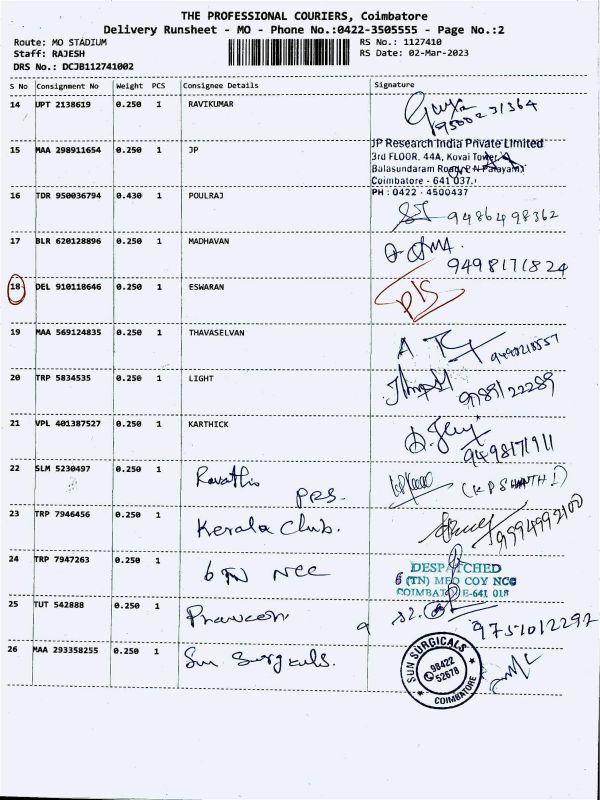 THE PROFESSIONAL COURIERS, Coimbatore
Delivery Runsheet - MO - Phone No.:0422-3505555 - Page No.:2
Route: MO STADIUM RS No.: 1127410
Staff: RAJESH RS Date: 02-Mar-2023
DRS No.: DCJB112741002
S No Consignment No Weight PCS Consignee Details Signature
14 UPT 2138619 0.250 1 RAVIKUMAR
15 MAA 298911654 0.250 1 JP
JP Research India Private Limited
3rd FLOOR, 44A, Kovai Tower,
Balasundaram Road, P N Palayam
Coimbatore - 641 037.
PH : 0422 - 4500437
16 TDR 950036794 0.430 1 POULRAJ 9486498362
17 BLR 620128896 0.250 1 MADHAVAN
9498171824
18 DEL 910118646 0.250 1 ESWARAN
19 MAA 569124835 0.250 1 THAVASELVAN
20 TRP 5834535 0.250 1 LIGHT 9789122289
21 VPL 401387527 0.250 1 KARTHICK
22 SLM 5230497 0.250 1 (K P SHANTHI)
PRS.
23 TRP 7946456 0.250 1 Kerala Club. 9594992100
24 TRP 7947263 0.250 1 6 TN NCC
DESPATCHED
6 (TN) MED COY NCC
COIMBATORE-641 018
25 TUT 542888 0.250 1 Praveen 9751012292
26 MAA 293358255 0.250 1 Sun Surgicals.
SUN SURGICALS
98422
52678
COIMBATORE